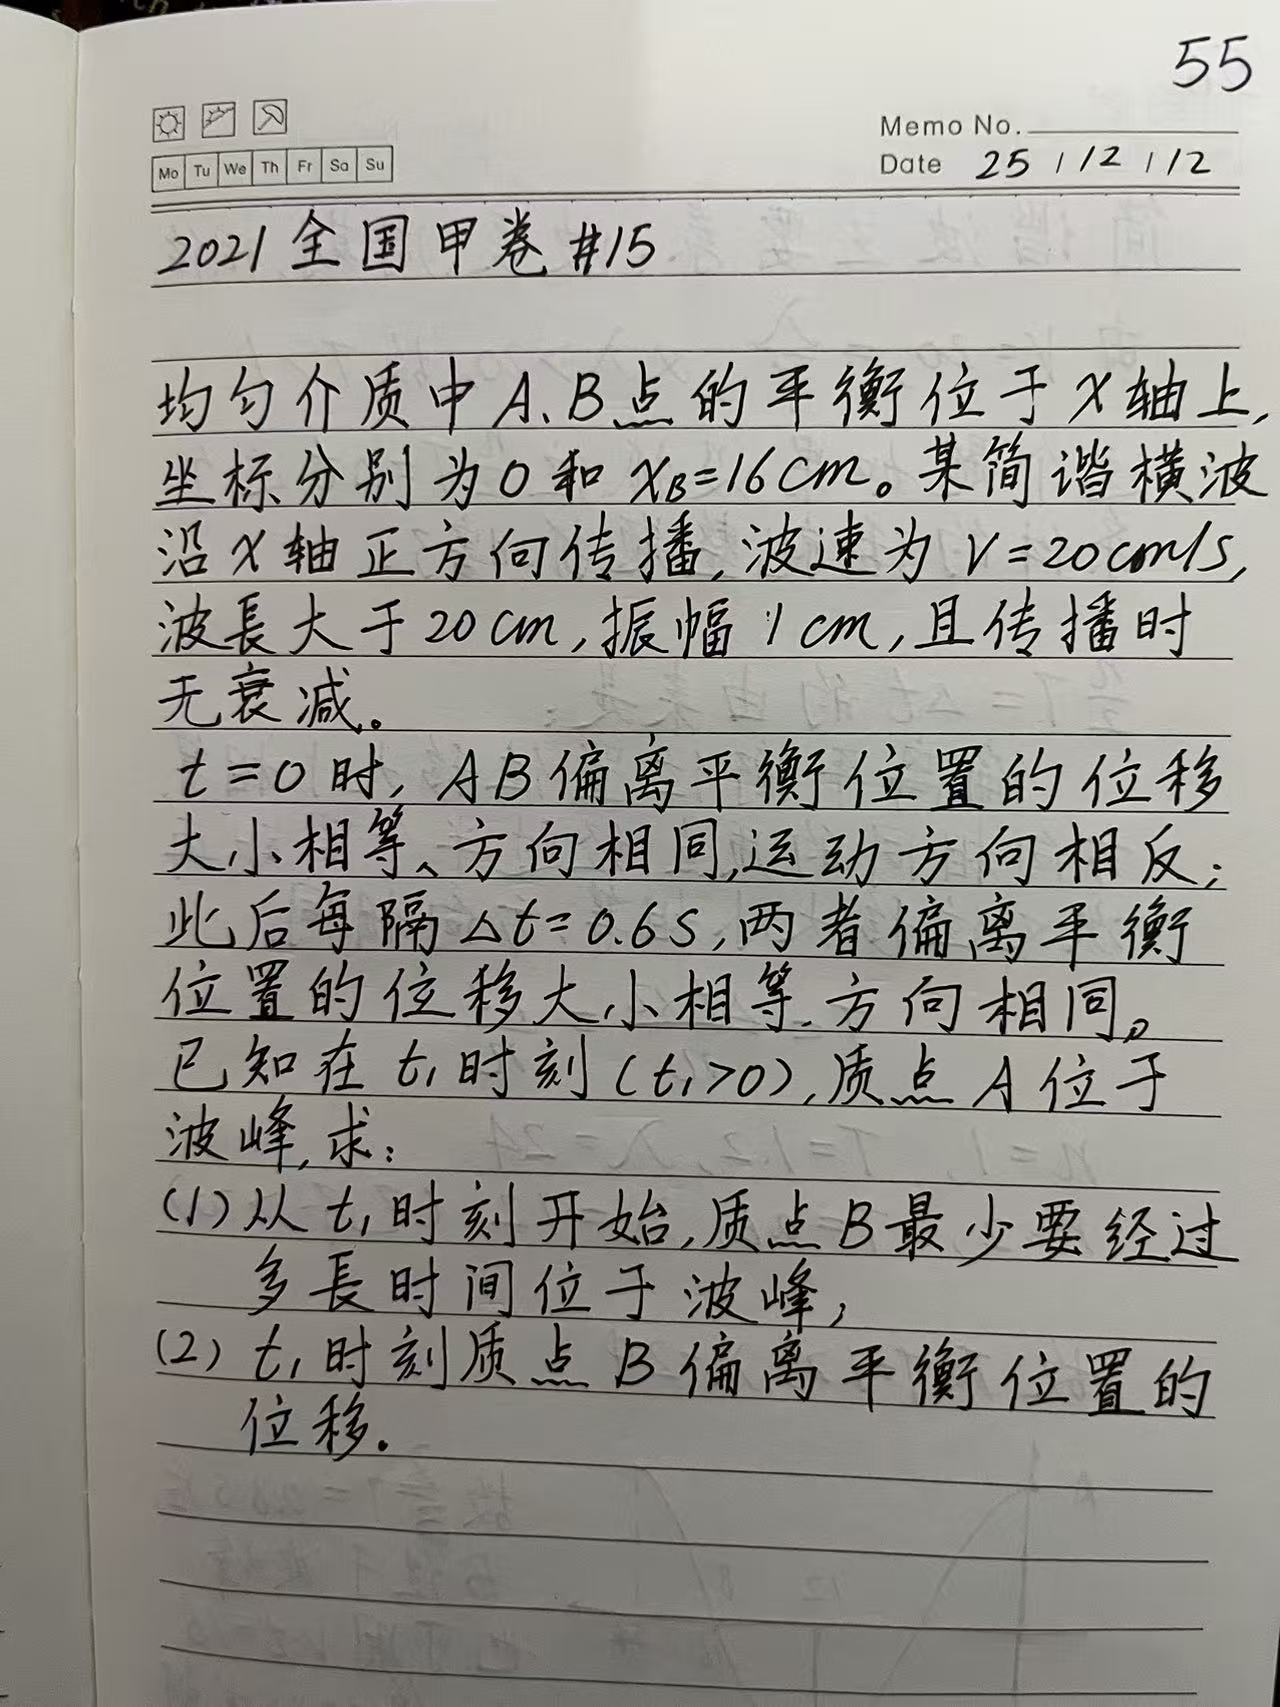 55
Memo No.
Mo Tu We Th Fr Sa Su
Date 25 / 12 / 12
2021 全国甲卷 #15
均匀介质中 A、B点的平衡位于 x 轴上,
坐标分别为0和 xB=16cm。某简谐横波
沿 x 轴正方向传播,波速为 V=20cm/s,
波長大于20cm,振幅 1cm,且传播时
无衰减。
t=0时, AB偏离平衡位置的位移
大小相等、方向相同,运动方向相反;
此后每隔 △t=0.6s,两者偏离平衡
位置的位移大小相等、方向相同。
已知在 t₁时刻(t₁>0),质点A位于
波峰,求:
(1)从 t₁时刻开始,质点B最少要经过
多長时间位于波峰,
(2) t₁时刻质点B偏离平衡位置的
位移.